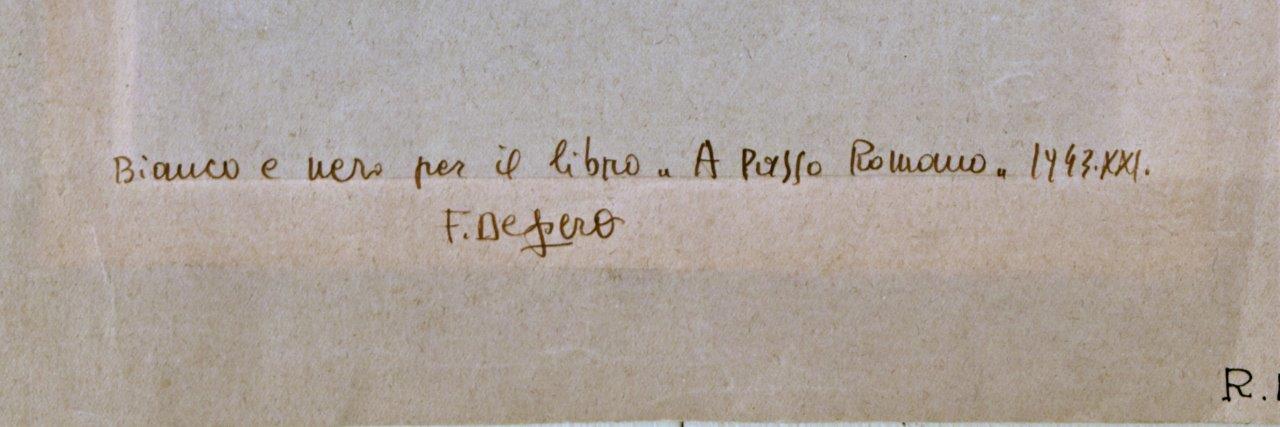 Bianco e nero per il libro „ A Passo Romano „ 1943.XXI.
F. Depero
R.